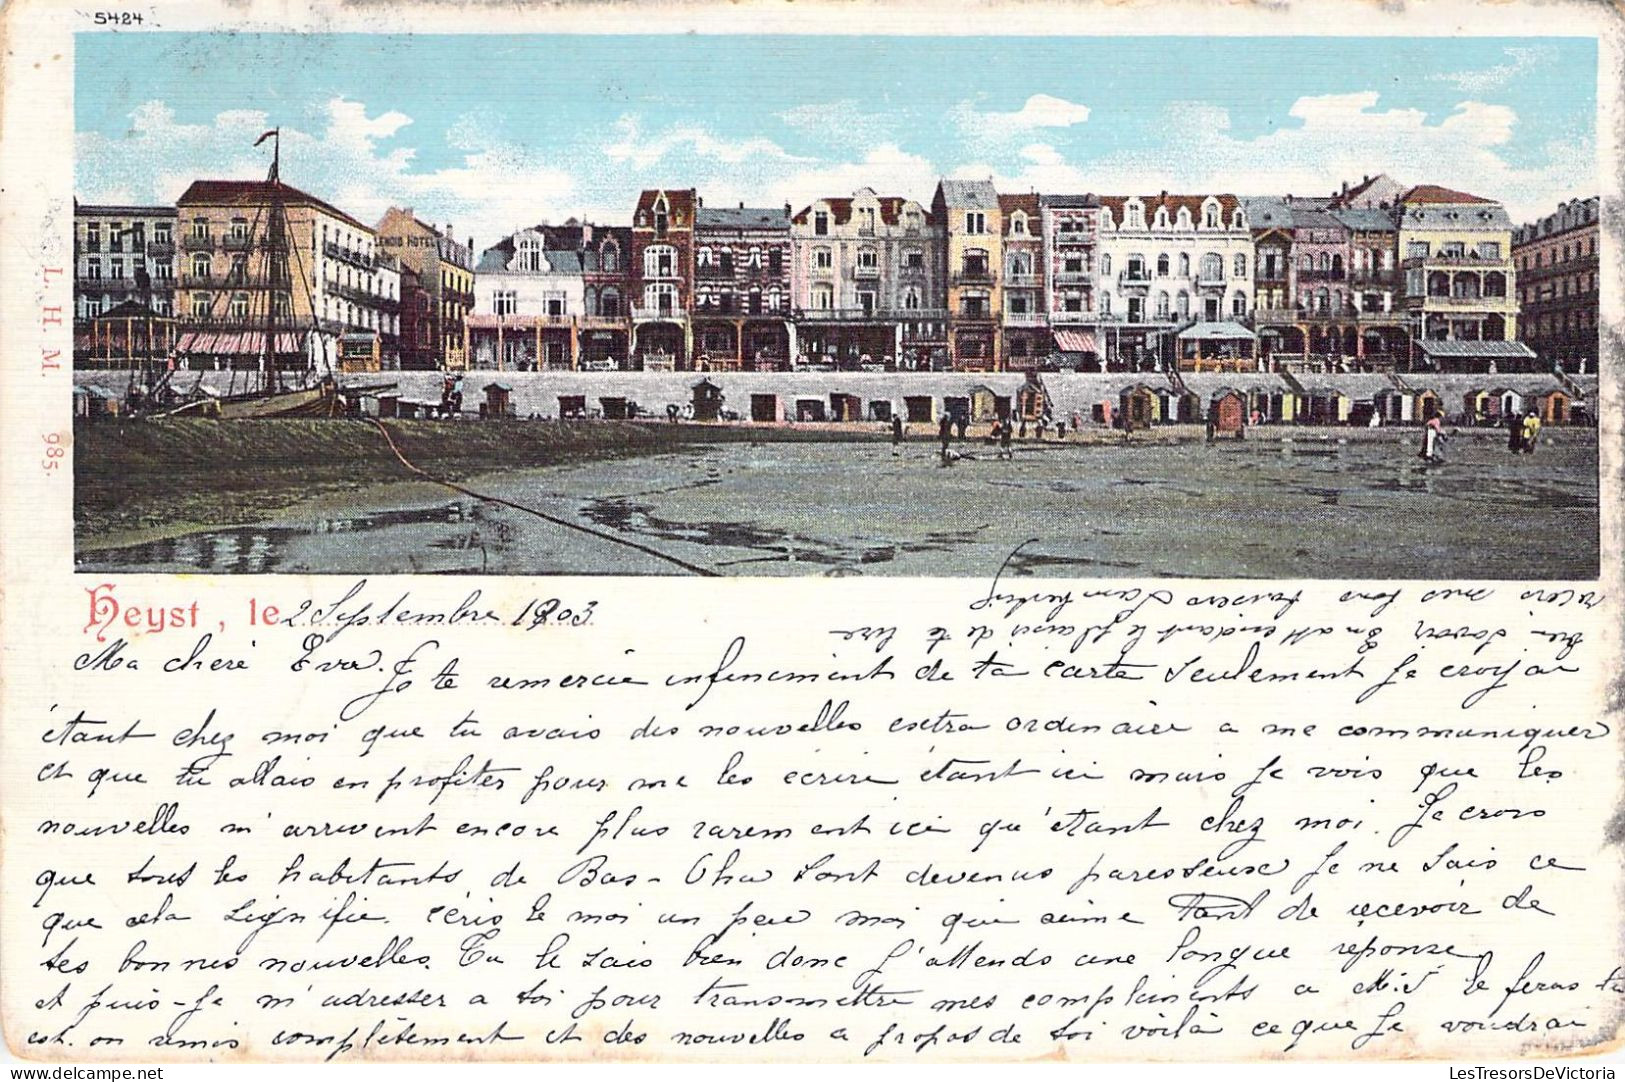 5424
L. H. M. 985.
Heyst, le 2 Septembre 1903
Ma cheré Eva. Je te remercie infeniment de ta carte seulement je croyai
étant chez moi que tu avais des nouvelles extra ordinaire a me communiquer
et que tu allais en profiter pour me les écrire étant ici mais je vois que les
nouvelles m'arrivent encore plus rarement ici qu'étant chez moi. Je crois
que tous les habitants de Bas-Oha sont devenus paresseux je ne sais ce
que cela signifie. écris le moi un peu moi qui aime tant de recevoir de
tes bonnes nouvelles. Tu le sais bien donc j'attends une longue réponse
et puis-je m'adresser a toi pour transmettre mes compliments a M.J le feras tu
est. on remis complètement et des nouvelles a propos de toi voilà ce que je voudrai
bien savoir En attendant le plaisir de te lire
LesTresorsDeVictoria
delcampe.net